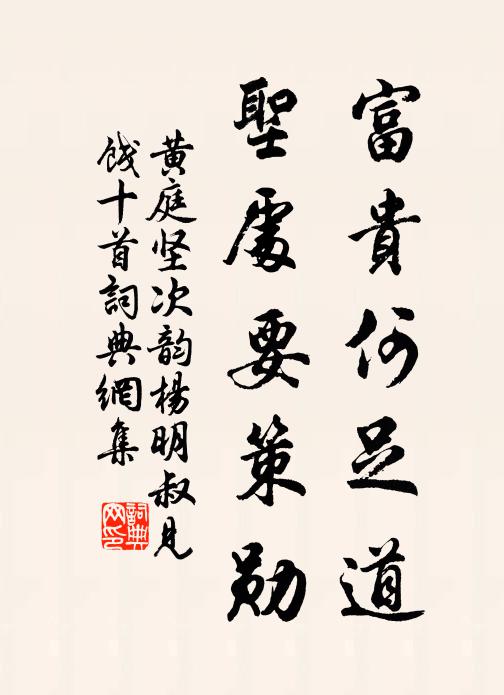 富貴何足道
聖處要策勛
黄庭坚次韵楊明叔見
餞十首詞典網集
詞典
网印